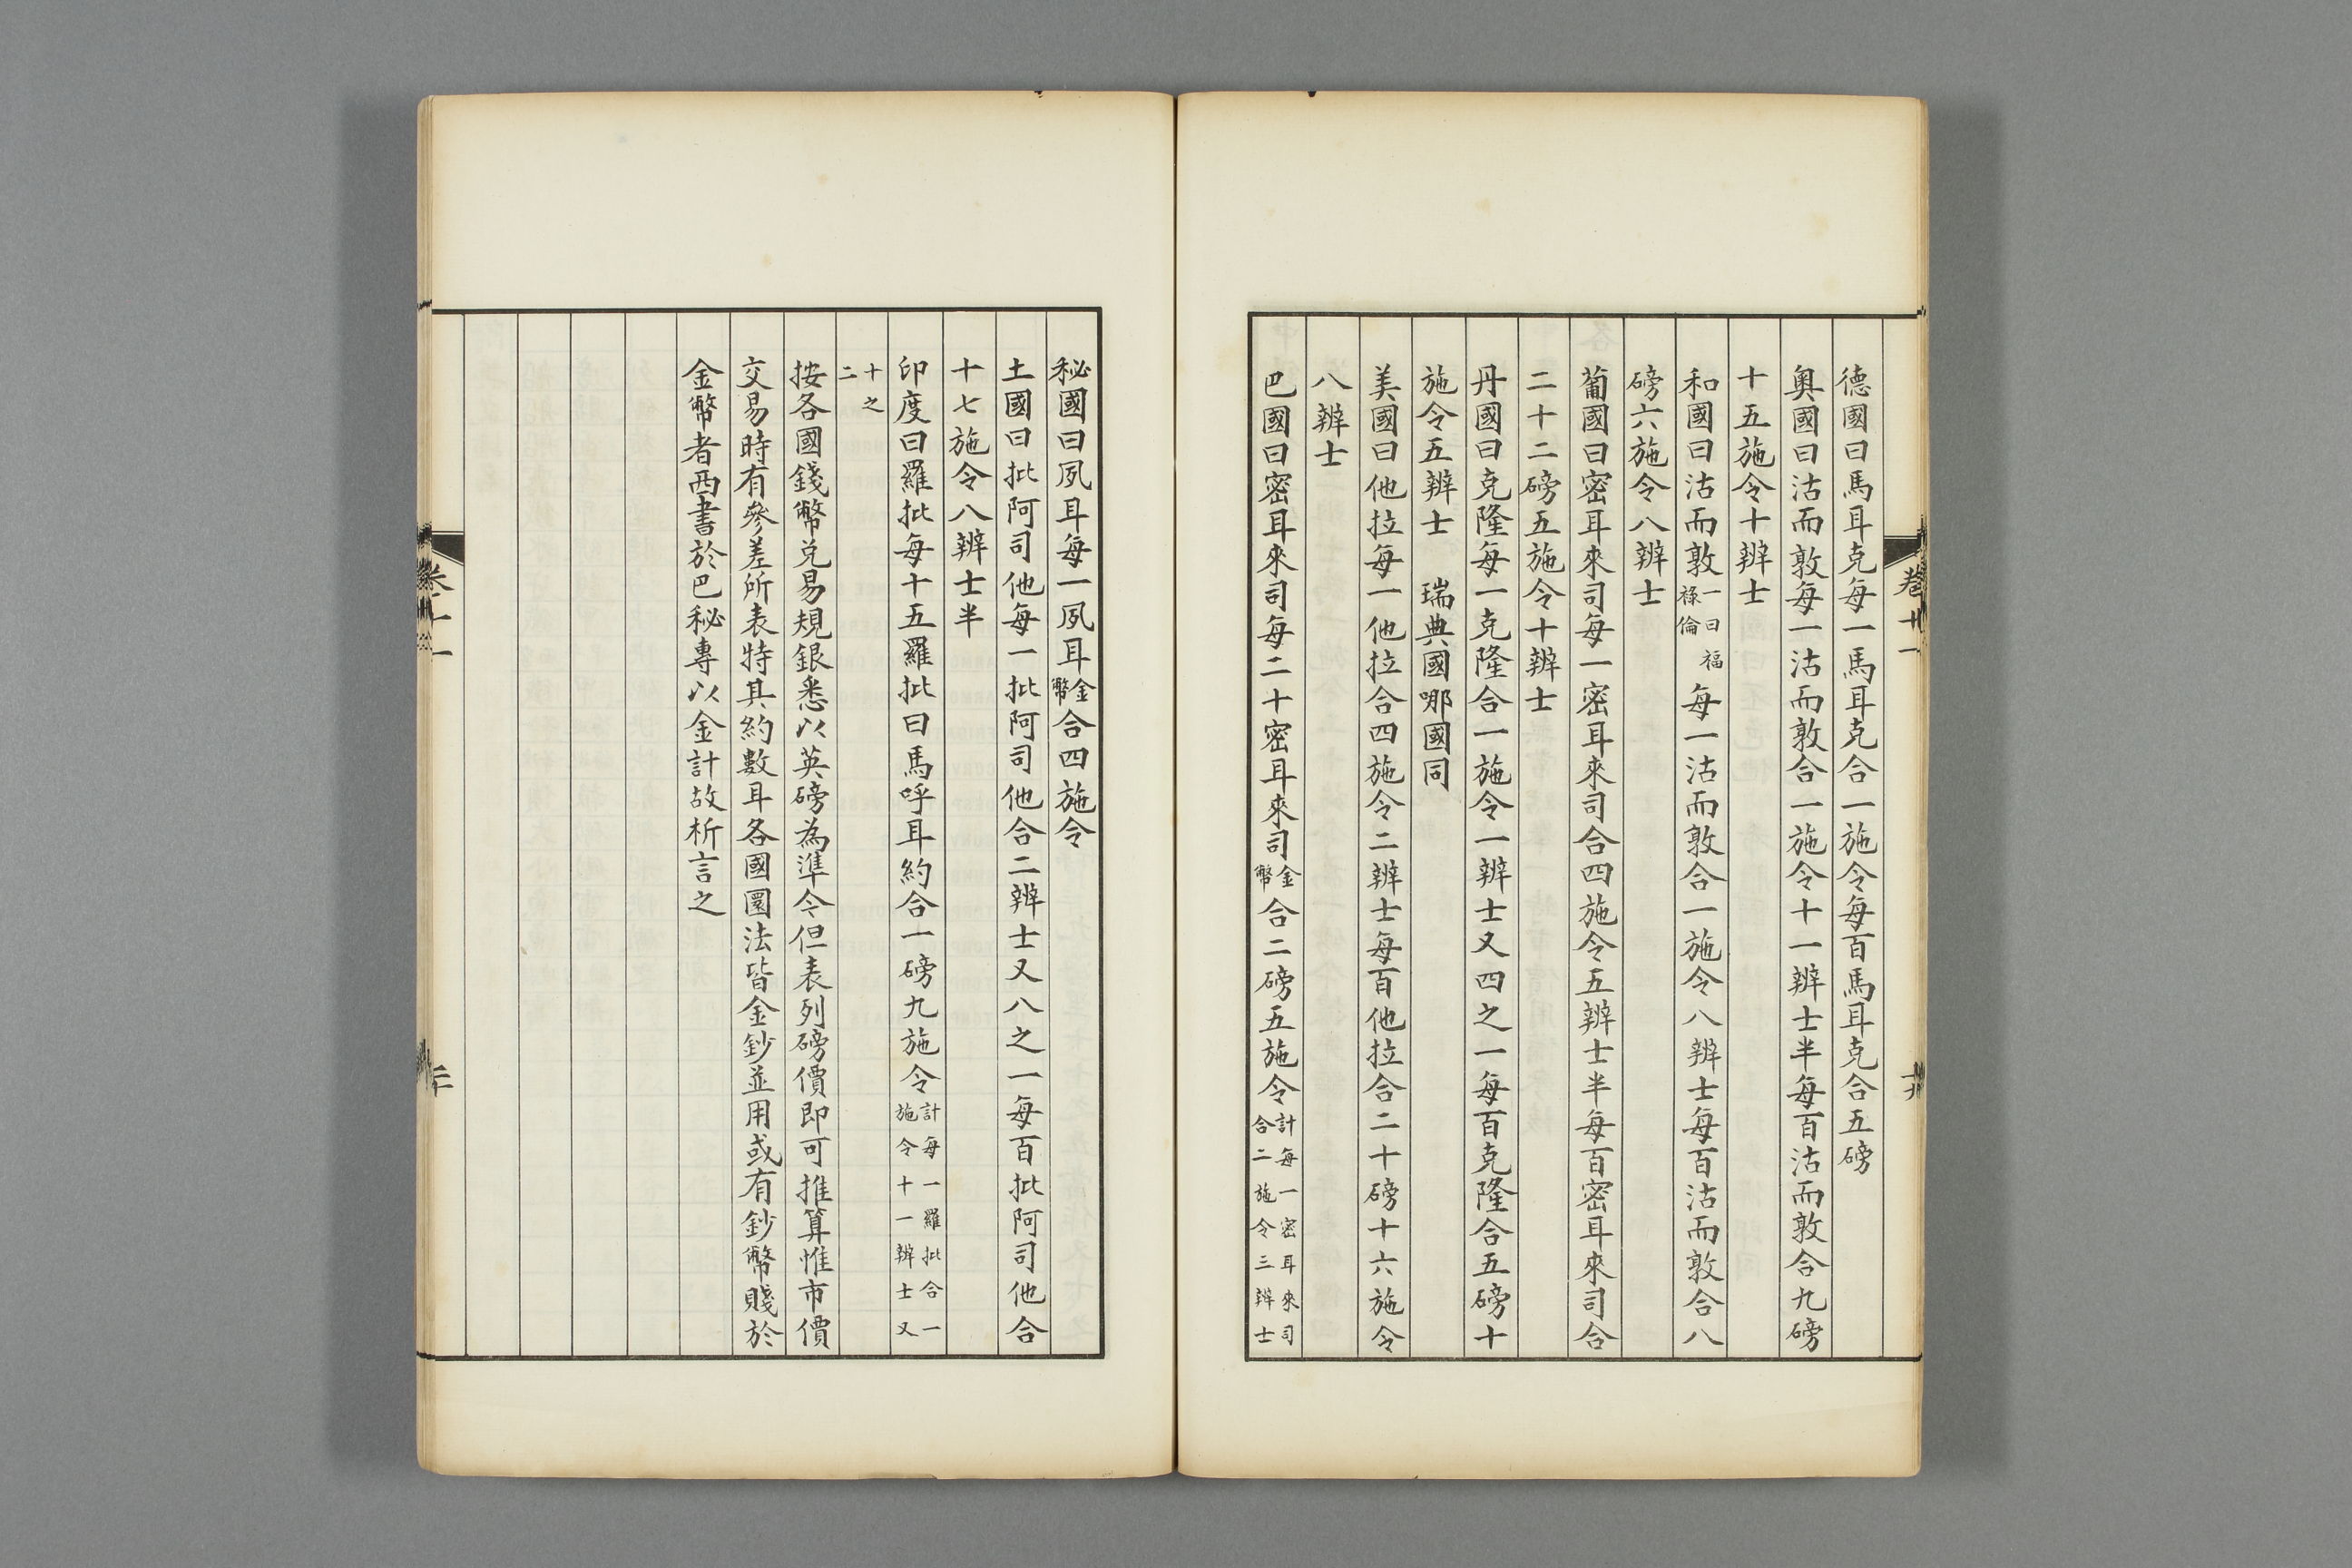 卷十一
十九
德國曰馬耳克每一馬耳克合一施令每百馬耳克合五磅
奧國曰沽而敦每一沽而敦合一施令十一辨士半每百沽而敦合九磅
十五施令十辨士
和國曰沽而敦一曰福祿倫每一沽而敦合一施令八辨士每百沽而敦合八
磅六施令八辨士
葡國曰密耳來司每一密耳來司合四施令五辨士半每百密耳來司合
二十二磅五施令十辨士
丹國曰克隆每一克隆合一施令一辨士又四之一每百克隆合五磅十
施令五辨士 瑞典國哪國同
美國曰他拉每一他拉合四施令二辨士每百他拉合二十磅十六施令
八辨士
巴國曰密耳來司每二十密耳來司金幣合二磅五施令計每一密耳來司合二施令三辨士
秘國曰夙耳每一夙耳金幣合四施令
土國曰批阿司他每一批阿司他合二辨士又八之一每百批阿司他合
十七施令八辨士半
印度曰羅批每十五羅批曰馬呼耳約合一磅九施令計每一羅批合一施令十一辨士又
十之二
按各國錢幣兌易規銀悉以英磅為準今但表列磅價即可推算惟市價
交易時有參差所表特其約數耳各國圜法皆金鈔並用或有鈔幣賤於
金幣者西書於巴秘專以金計故析言之
卷十一
二十